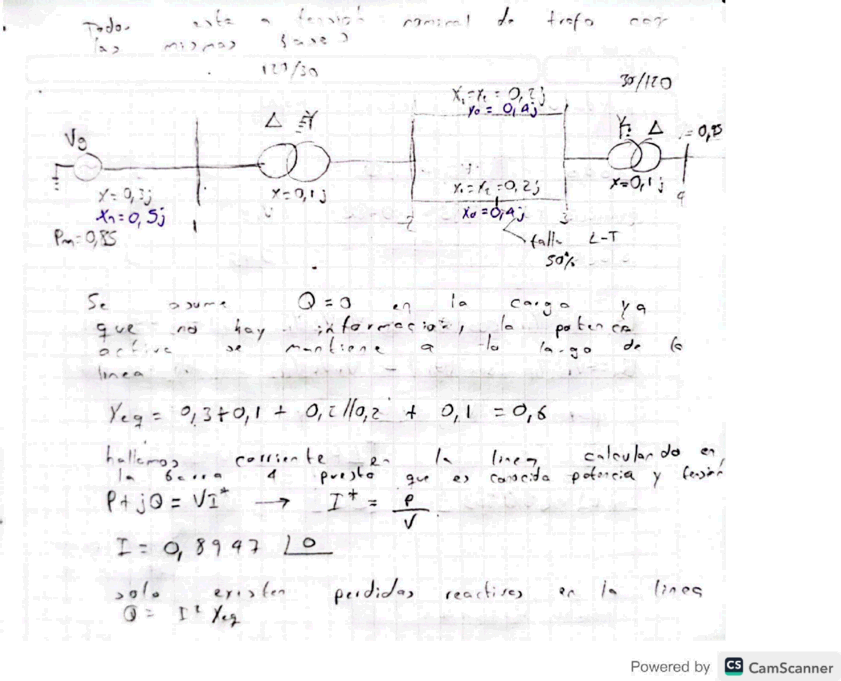 Todo esta a tension nominal de trafo con
las mismas bases
120/30
30/120
X₁=X₂=0,2j
X₀=0,4j
Δ
Y
Y
Δ
=0,95
Vg
X=0,3j
Xn=0,5j
Pm=0,85
X=0,1j
X₁=X₂=0,2j
X₀=0,4j
X=0,1j
1
2
3
4
falla L-T
50%
Se asume Q=0 en la carga ya
que no hay informacion, la potencia
activa se mantiene a lo largo de la
linea
Xeq = 0,3+0,1 + 0,2//0,2 + 0,1 = 0,6
hallamos corriente en la linea calculando en
la barra 4 puesto que es conocida potencia y tension
P+jQ = VI* → I* = P/V
I = 0,8947 ∠0
solo existen perdidas reactivas en la linea
Q = I² Xeq
Powered by CS CamScanner